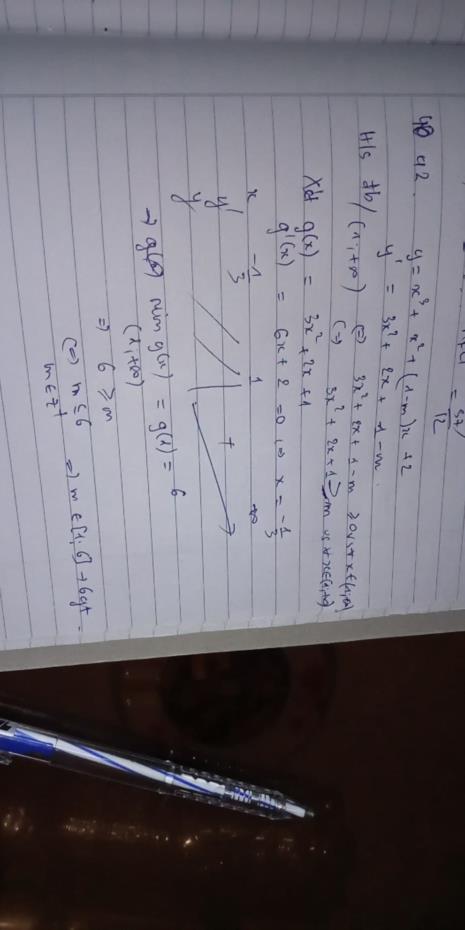 = 57/12
42. y = x³ + x² + (1-m)x + 2
y' = 3x² + 2x + 1-m.
H/s đb/(1;+∞) (=) 3x² + 2x + 1-m ≥ 0 ∀x∈(1;+∞)
(=) 3x² + 2x + 1 ≥ m ∀x∈(1;+∞)
Xét g(x) = 3x² + 2x + 1
g'(x) = 6x + 2 = 0 (=) x = -1/3
x -1/3 1 +∞
y' +
y
→ min g(x) = g(1) = 6
(1;+∞)
=) 6 ≥ m
(=) m ≤ 6 =) m ∈ [1;6] → 6 gt
m ∈ Z⁺